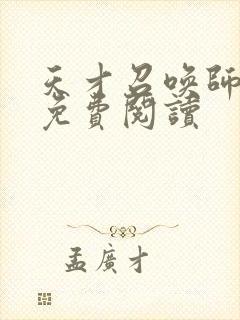 天才召喚師
免費閱讀
孟廣才